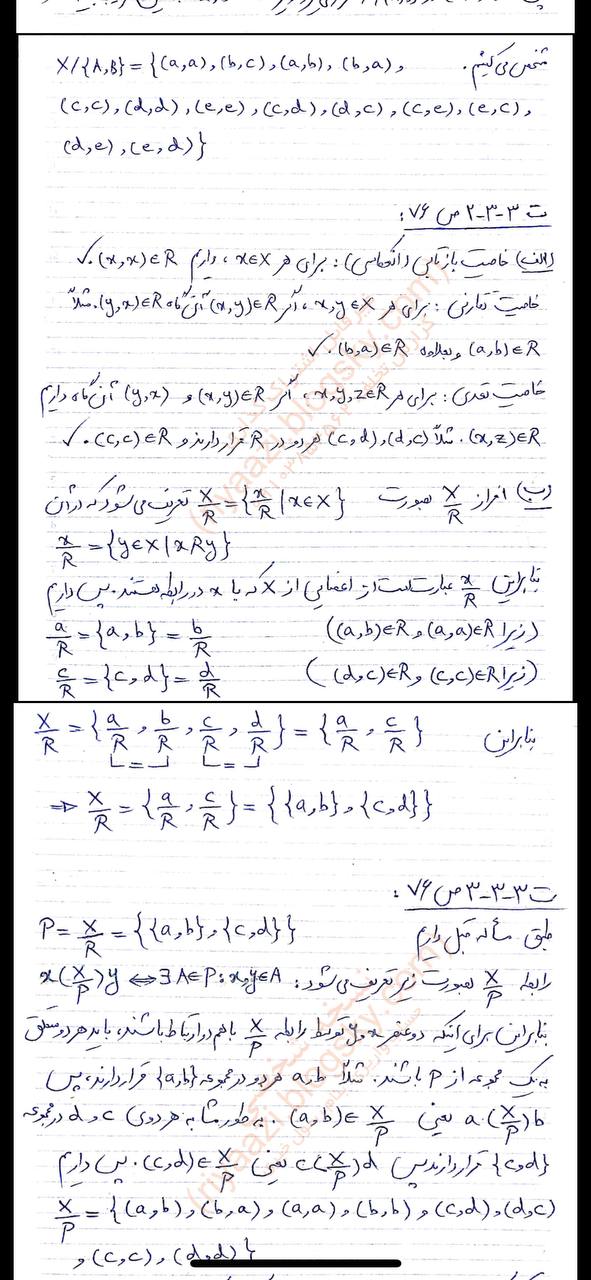 مشخص می‌کنیم. X/{A,B} = {(a,a), (b,c), (a,b), (b,a),
(c,c), (d,d), (e,e), (c,d), (d,c), (c,e), (e,c),
(d,e), (e,d)}
ت ۳-۳-۲ ص ۷۶:
(الف) خاصیت بازتابی (انعکاسی): برای هر x∈X، داریم (x,x)∈R. ✓
خاصیت تقارنی: برای هر x,y∈X، اگر (x,y)∈R آن گاه (y,x)∈R. مثلاً
(a,b)∈R و بعلاوه (b,a)∈R. ✓
خاصیت تعدی: برای هر x,y,z∈R، اگر (x,y)∈R و (y,x) آن گاه داریم
(x,z)∈R. مثلاً (c,d), (d,c) هر دو در R قرار دارند و (c,c)∈R. ✓
(ب) افراز X/R بصورت X/R = {x/R | x∈X} تعریف می شود که در آن
x/R = {y∈X | xRy}
بنابراین x/R عبارت است از اعضایی از X که با x در رابطه هستند. پس داریم
a/R = {a,b} = b/R (زیرا (a,a)∈R و (a,b)∈R)
c/R = {c,d} = d/R (زیرا (c,c)∈R و (d,c)∈R)
بنابراین X/R = {a/R, b/R, c/R, d/R} = {a/R, c/R}
=
=
⇒ X/R = {a/R, c/R} = {{a,b}, {c,d}}
ت ۳-۳-۳ ص ۷۶:
طبق مسأله قبل داریم P = X/R = {{a,b}, {c,d}}
رابطه X/P بصورت زیر تعریف می شود: x(X/P)y ⇔ ∃A∈P: x,y∈A
بنابراین برای اینکه دو عنصر x و y توسط رابطه X/P با هم در ارتباط باشند، باید هر دو متعلق
به یک مجموعه از P باشند. مثلاً a,b هر دو در مجموعه {a,b} قرار دارند، پس
a(X/P)b یعنی (a,b)∈X/P. به طور مشابه هر دوی c و d در مجموعه
{c,d} قرار دارند پس c(X/P)d یعنی (c,d)∈X/P. پس داریم
X/P = {(a,b), (b,a), (a,a), (b,b), (c,d), (d,c)
, (c,c), (d,d)}